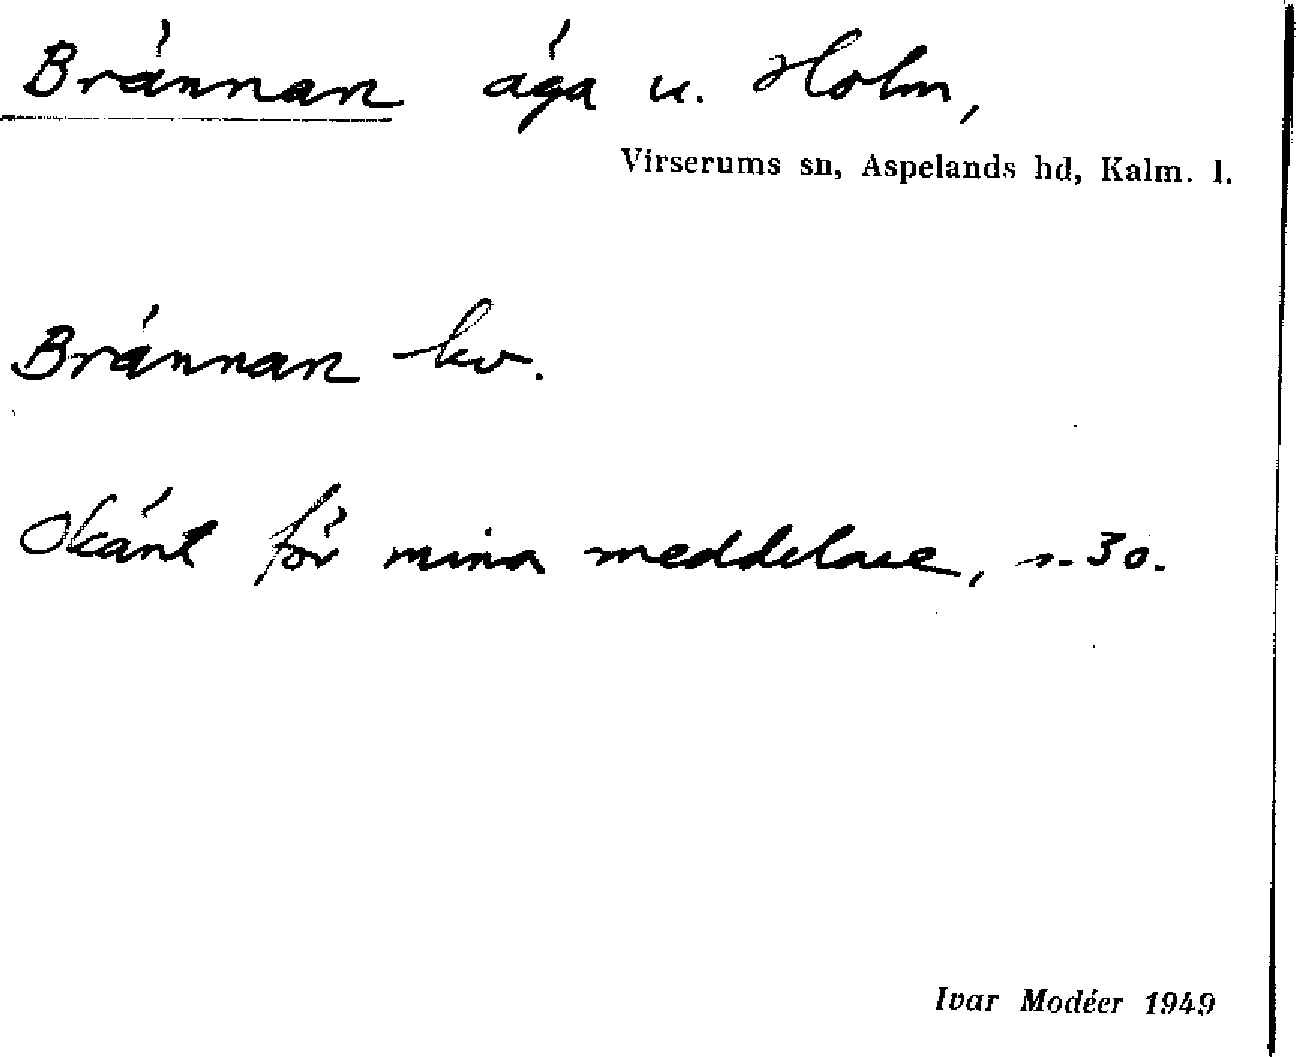 Brännan äga u. Holm,
Virserums sn, Aspelands hd, Kalm. l.
Brännan kv.
Okänt för mina meddelare, s. 30.
Ivar Modéer 1949